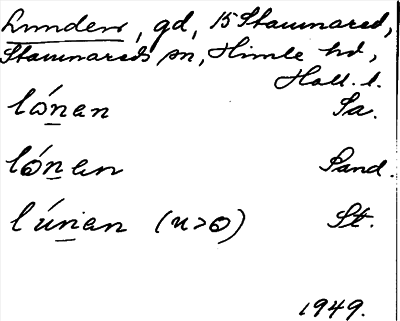 Lunden, gd, 15 Stamnared,
Stamnareds sn, Himle hd,
Hall. l.
lónan Sa.
lónan Sand.
lúnan (u>o) St.
1949.